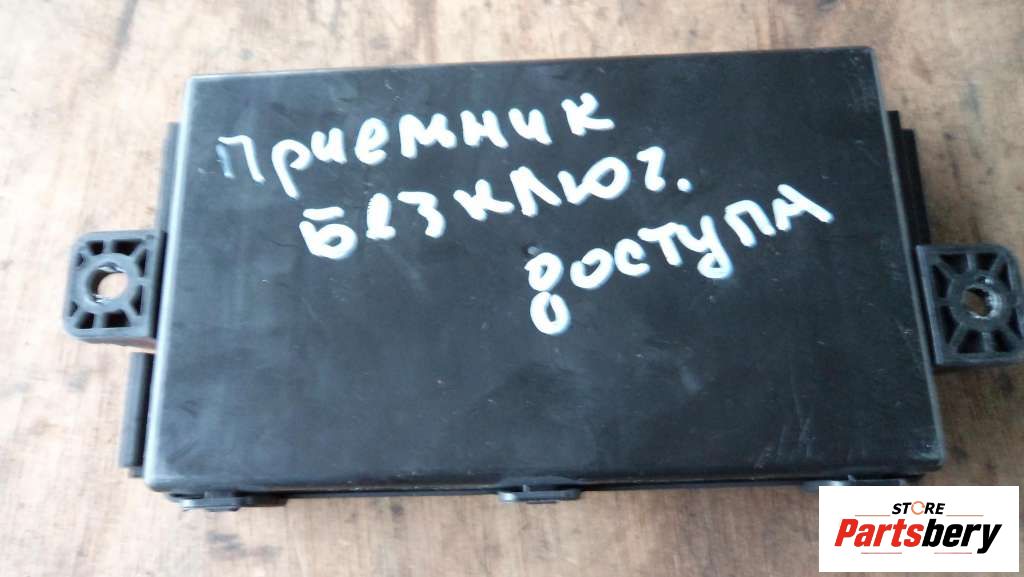 Приемник
Безключ.
доступа
STORE
Partsbery